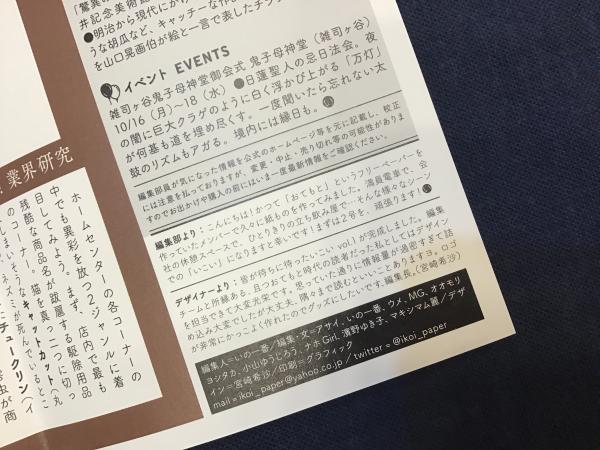 「驚異の
井記念美術館
●明治から現代にかけ
うな胡瓜など、キャッチーな作
を山口晃画伯が絵と一言で表したチン
イベント EVENTS
雑司ヶ谷鬼子母神堂御会式 鬼子母神堂（雑司ヶ谷）
10/16（月）〜18（水）●日蓮聖人の忌日法会。夜
の闇に巨大クラゲのように白く浮かび上がる「万灯」
が何基も道を埋め尽くす。一度聞いたら忘れない太
鼓のリズムもアガる。境内には縁日も。
編集部員が気になった情報を公式のホームページ等を元に記載し、校正
には注意を払っておりますが、変更・中止・売り切れ等の可能性がありま
すのでお出かけや購入の前にはいま一度最新情報をご確認ください。
編集部より：こんにちは！かつて「おてもと」というフリーペーパーを
作っていたメンバーで久々に紙ものを作ってみました。満員電車で、会
社の休憩スペースで、ひとりきりの立ち飲み屋で…そんな様々なシーン
での「いこい」になりますと幸いです！まずは2号を、頑張ります！
デザイナーより：皆が待ちに待ったいこい vol.1が完成しました。編集
チームと所縁ある、且つおてもと時代の読者だった私としてはデザイン
を担当できて大変光栄です。思っていた通りに情報量が過密すぎて詰
め込み大変でしたが大丈夫、隅々まで読むといいことありますヨ。ロゴ
が非常にかっこよく作れたのでグッズにしたいです、編集長。（宮崎希沙）
編集人＝いの一番／編集・文＝アサイ、いの一番、ウメ、MG、オオモリ
ヨシタカ、小山ゆうじろう、ナホ Girl、濱野ゆき子、マキシマム麗／デザ
イン＝宮崎希沙／印刷＝グラフィック
mail = ikoi_paper@yahoo.co.jp / twitter = @ikoi_paper
業界研究
ホームセンターの各コーナーの
中でも異彩を放つ2ジャンルに着
目してみよう。まず、店内で最も
残酷な商品名が跋扈する駆除用品
のコーナー。猫を真っ二つに切っ
てしまいそうなキャットカット（丸
ネズミが死んでいるとこ
チュークリン（イ
害虫が商